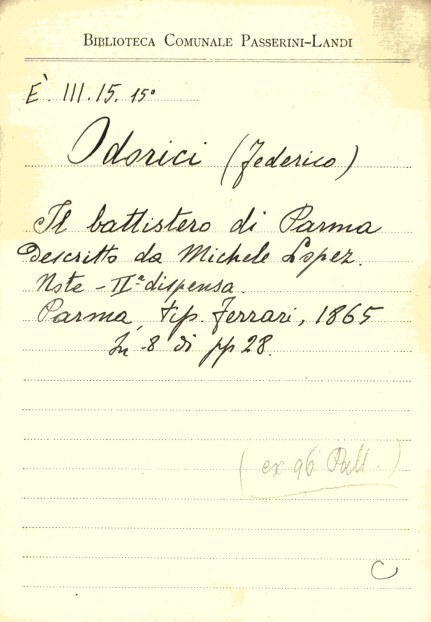 BIBLIOTECA COMUNALE PASSERINI-LANDI
È. III. 15. 15°
Odorici (Federico)
Il battistero di Parma
Descritto da Michele Lopez.
Note - II.ª dispensa.
Parma, tip. Ferrari, 1865
In -8 di pp 28.
(ex 96 Pall.)
C